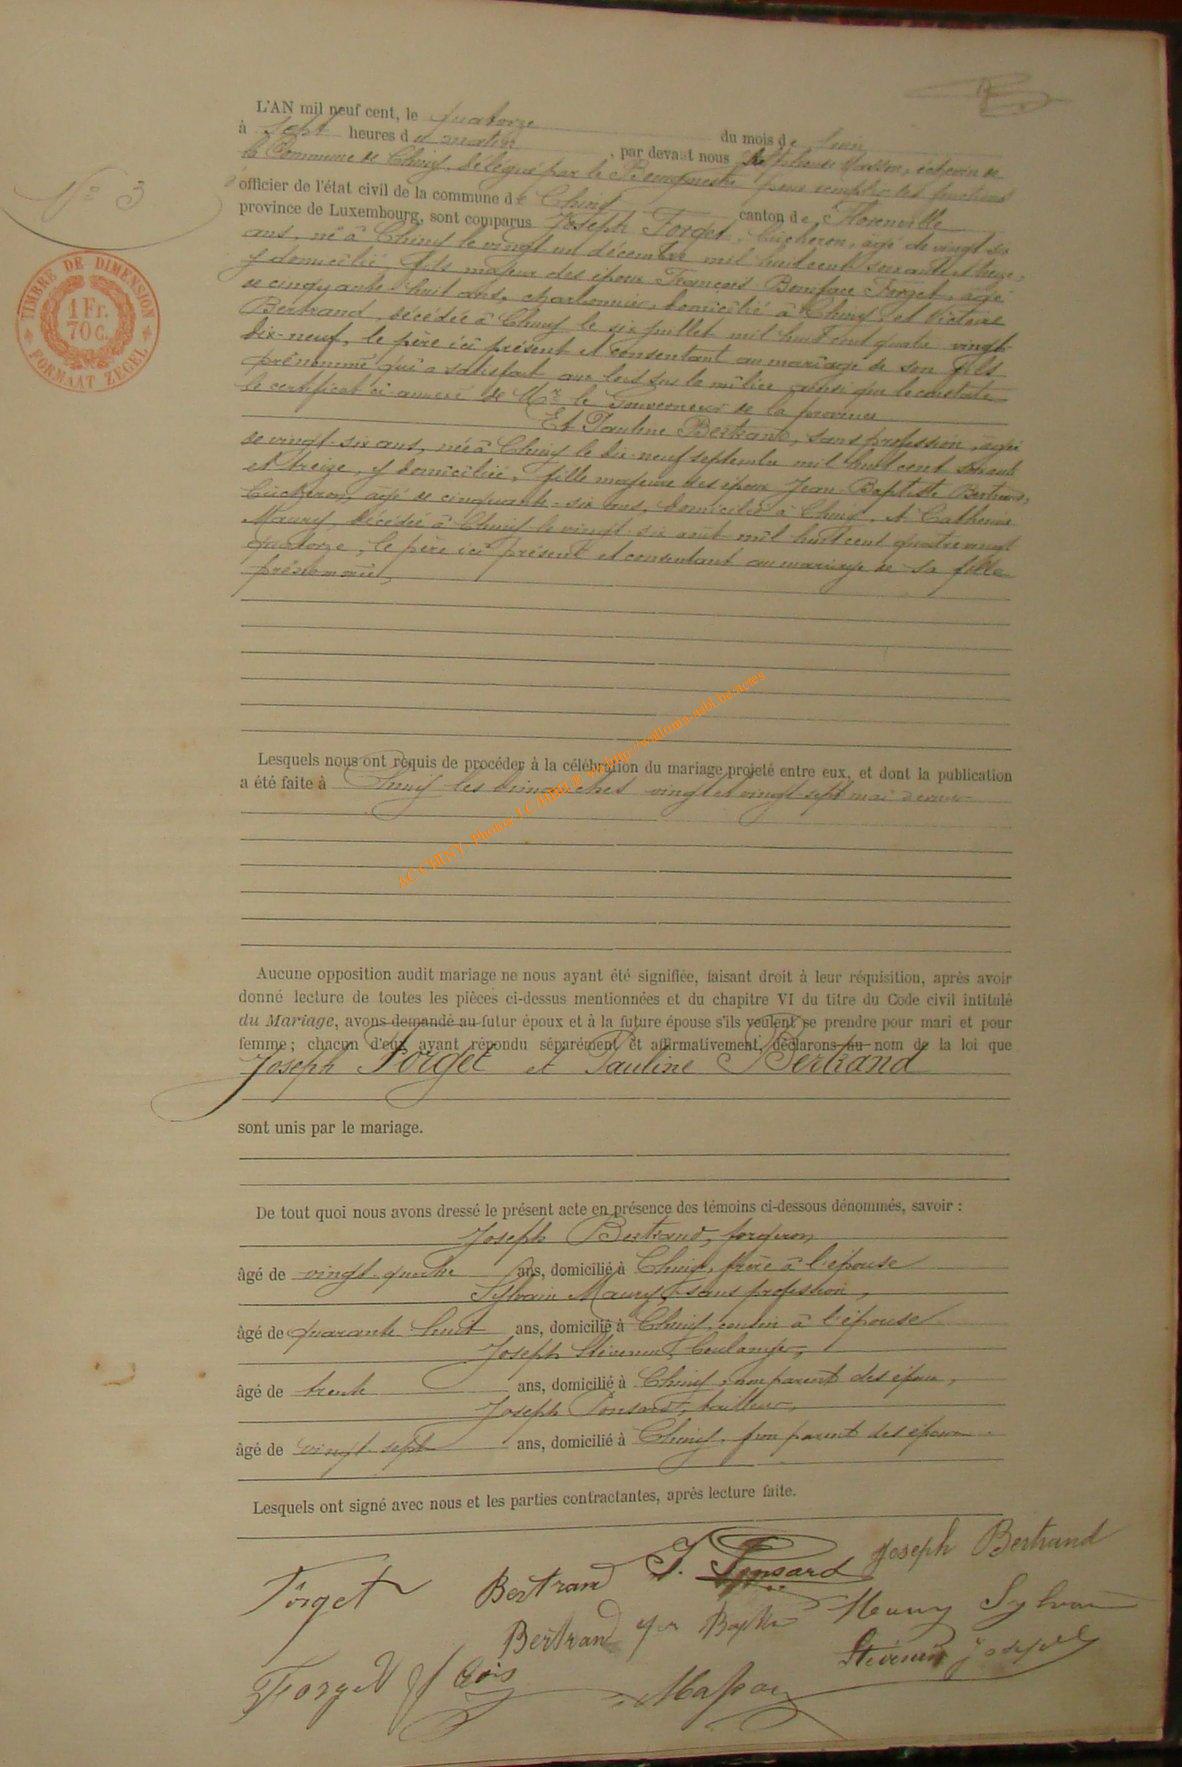 L'AN mil neuf cent, le quatorze du mois de Juin
à sept heures du matin, par devant nous Masson, échevin de
la Commune de Chiny, délégué par le Bourgmestre pour remplir les fonctions
d'officier de l'état civil de la commune de Chiny canton de Florenville
N° 3
province de Luxembourg, sont comparus Joseph Forget, bûcheron, âgé de vingt six
ans, né à Chiny le vingt un décembre mil huit cent soixante treize,
y domicilié, fils majeur des époux François Boniface Forget, âgé
de cinquante huit ans, charbonnier, domicilié à Chiny, et Victoire
Bertrand, décédée à Chiny le six juillet mil huit cent quatre vingt
dix-neuf, le père ici présent et consentant au mariage de son fils
prénommé qui a satisfait aux lois sur la milice ainsi que le constate
le certificat ci annexé de Mr le Gouverneur de la province
Et Pauline Bertrand, sans profession, âgée
de vingt-six ans, née à Chiny le dix-neuf septembre mil huit cent soixante
et treize, y domiciliée, fille majeure des époux Jean-Baptiste Bertrand,
bûcheron, âgé de cinquante-six ans, domicilié à Chiny, et Catherine
Maury, décédée à Chiny le vingt-six août mil huit cent quatre vingt
quatorze, le père ici présent et consentant au mariage de sa fille
prénommée,
TIMBRE DE DIMENSION
1 Fr.
70 C.
FORMAAT ZEGEL
Lesquels nous ont requis de procéder à la célébration du mariage projeté entre eux, et dont la publication
a été faite à Chiny les dimanches vingt et vingt-sept mai dernier
AC CHINY - Photos
Aucune opposition audit mariage ne nous ayant été signifiée, faisant droit à leur réquisition, après avoir
donné lecture de toutes les pièces ci-dessus mentionnées et du chapitre VI du titre du Code civil intitulé
du Mariage, avons demandé au futur époux et à la future épouse s'ils veulent se prendre pour mari et pour
femme; chacun d'eux ayant répondu séparément et affirmativement, déclarons au nom de la loi que
Joseph Forget et Pauline Bertrand
sont unis par le mariage.
De tout quoi nous avons dressé le présent acte en présence des témoins ci-dessous dénommés, savoir :
Joseph Bertrand, forgeron,
âgé de vingt-quatre ans, domicilié à Chiny, frère à l'épouse
Sylvain Maury, sans profession,
âgé de quarante huit ans, domicilié à Chiny, cousin à l'épouse
Joseph Stévenin, boulanger,
âgé de trente ans, domicilié à Chiny, non parent des époux,
Joseph Ponsard, tailleur,
âgé de vingt-sept ans, domicilié à Chiny, non parent des époux.
Lesquels ont signé avec nous et les parties contractantes, après lecture faite.
Forget Bertrand J. Ponsard Joseph Bertrand
Bertrand Maury Sylvain
Stévenin Joseph
Forget Masson